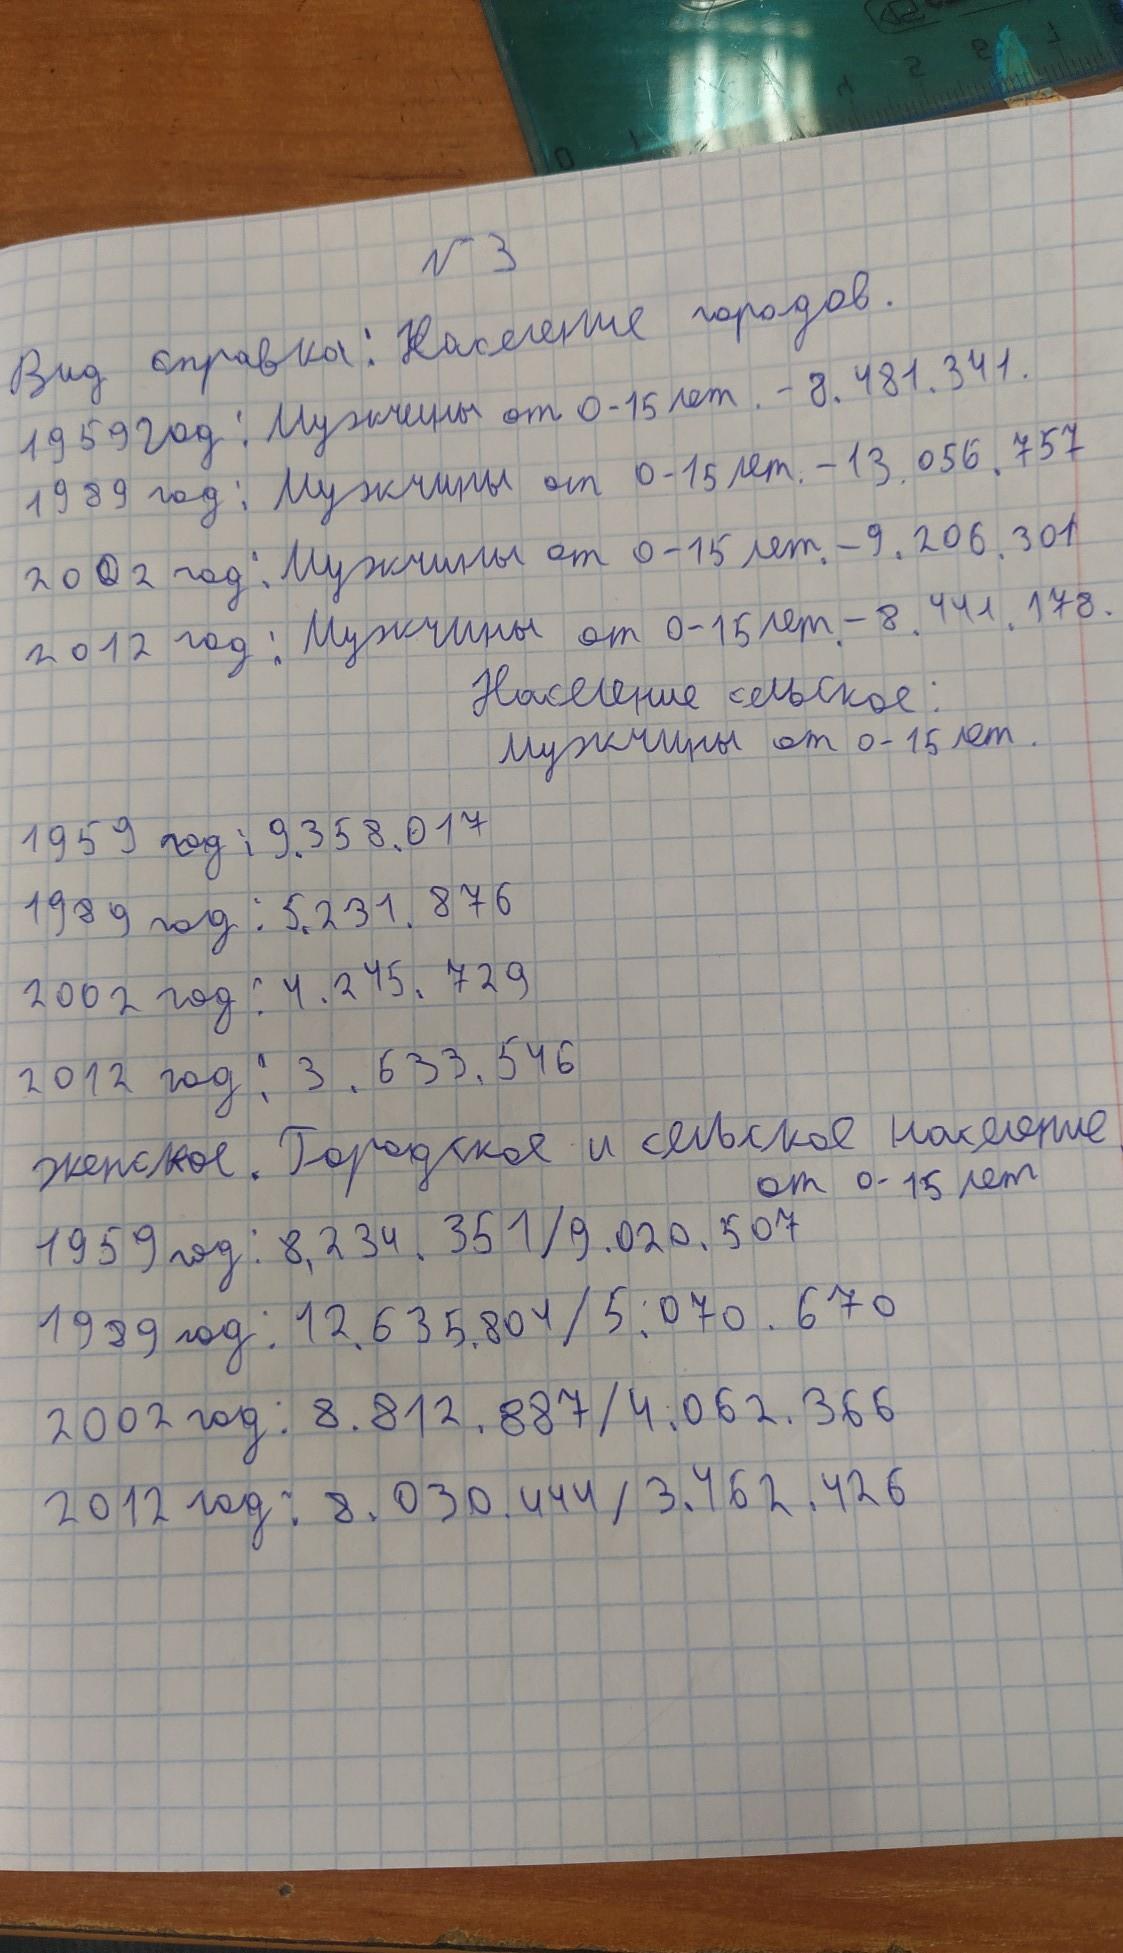 № 3
Вид справка: Население городов.
1959 год: Мужчины от 0-15 лет. - 8.481.341.
1989 год: Мужчины от 0-15 лет. - 13.056.757
2002 год: Мужчины от 0-15 лет. - 9.206.301
2012 год: Мужчины от 0-15 лет. - 8.441.178.
Население сельское:
Мужчины от 0-15 лет.
1959 год: 9.358.017
1989 год: 5.231.876
2002 год: 4.245.729
2012 год: 3.633.546
женское. Городское и сельское население
от 0-15 лет
1959 год: 8,234.351/9.020.507
1989 год: 12.635.804/5.070.670
2002 год: 8.812.887/4.062.366
2012 год: 8.030.444/3.462.426
0 1 4 5 6 7